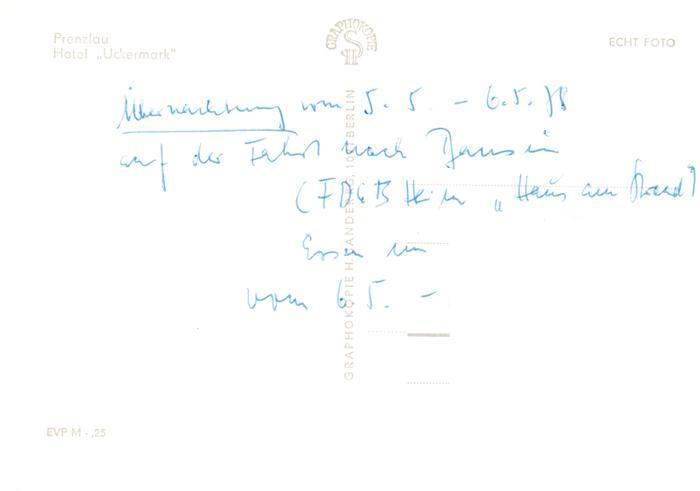 Prenzlau
Hotel „Uckermark"
GRAPHOKOPIE
H
S
ECHT FOTO
Übernachtung vom 5. 5. - 6.5. 78
auf der Fahrt nach Bansin
(FDGB Heim „Haus am Strand")
Essen im
vom 6.5. -
GRAPHOKOPIE H. SANDER KG, BERLIN
EVP M -,25